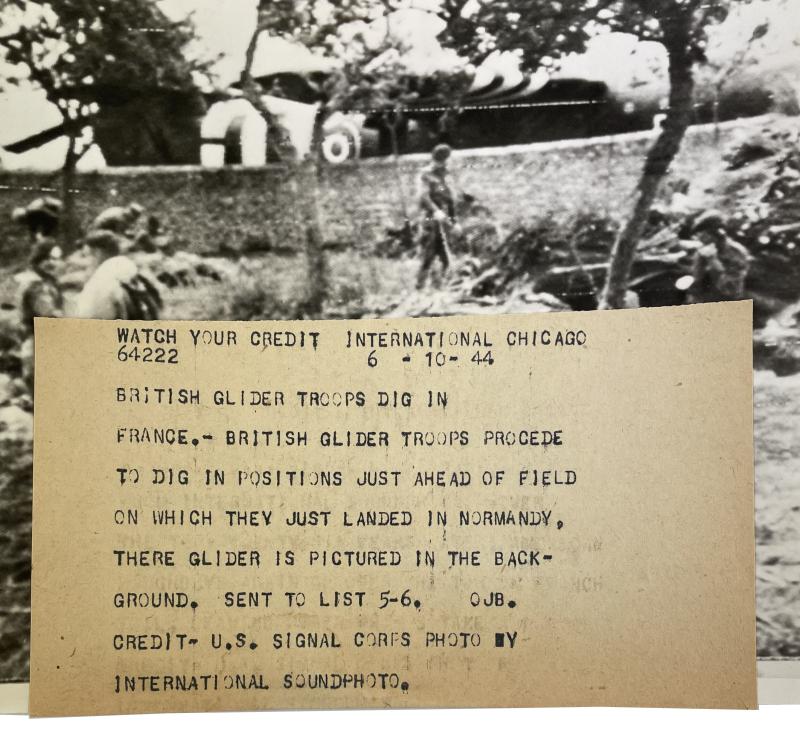 WATCH YOUR CREDIT INTERNATIONAL CHICAGO
64222 6 - 10- 44
BRITISH GLIDER TROOPS DIG IN
FRANCE.- BRITISH GLIDER TROOPS PROCEDE
TO DIG IN POSITIONS JUST AHEAD OF FIELD
ON WHICH THEY JUST LANDED IN NORMANDY,
THERE GLIDER IS PICTURED IN THE BACK-
GROUND. SENT TO LIST 5-6. OJB.
CREDIT- U.S. SIGNAL CORPS PHOTO BY
INTERNATIONAL SOUNDPHOTO.